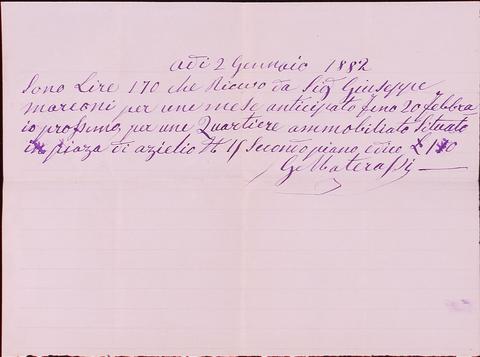 Adi 2 Gennaio 1882
Sono Lire 170 che Ricevo da Sig Giuseppe
Marconi per une mese anticipato fino 20 Febbra
io prossimo, per une Quartiere ammobiliato Situato
in piaza di azielio N 15 Secondo piano, dico £ 170
G Materassi